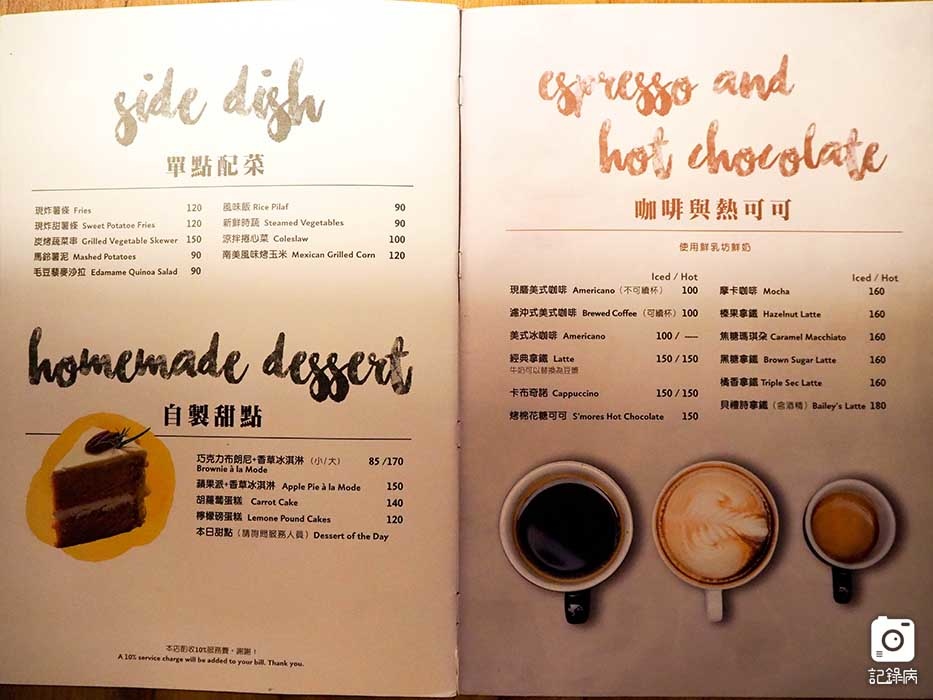 side dish
單點配菜
現炸薯條 Fries 120
現炸甜薯條 Sweet Potatoe Fries 120
炭烤蔬菜串 Grilled Vegetable Skewer 150
馬鈴薯泥 Mashed Potatoes 90
毛豆藜麥沙拉 Edamame Quinoa Salad 90
風味飯 Rice Pilaf 90
新鮮時蔬 Steamed Vegetables 90
涼拌捲心菜 Coleslaw 100
南美風味烤玉米 Mexican Grilled Corn 120
homemade dessert
自製甜點
巧克力布朗尼+香草冰淇淋（小/大） 85 /170
Brownie à la Mode
蘋果派+香草冰淇淋 Apple Pie à la Mode 150
胡蘿蔔蛋糕 Carrot Cake 140
檸檬磅蛋糕 Lemone Pound Cakes 120
本日甜點（請詢問服務人員）Dessert of the Day
本店酌收10%服務費，謝謝！
A 10% service charge will be added to your bill. Thank you.
espresso and
hot chocolate
咖啡與熱可可
使用鮮乳坊鮮奶
Iced / Hot
現磨美式咖啡 Americano（不可續杯） 100
濾沖式美式咖啡 Brewed Coffee（可續杯）100
美式冰咖啡 Americano 100 / —
經典拿鐵 Latte 150 / 150
牛奶可以替換為豆漿
卡布奇諾 Cappuccino 150 / 150
烤棉花糖可可 S'mores Hot Chocolate 150
Iced / Hot
摩卡咖啡 Mocha 160
榛果拿鐵 Hazelnut Latte 160
焦糖瑪琪朵 Caramel Macchiato 160
黑糖拿鐵 Brown Sugar Latte 160
橘香拿鐵 Triple Sec Latte 160
貝禮詩拿鐵（含酒精）Bailey's Latte 180
記錄病